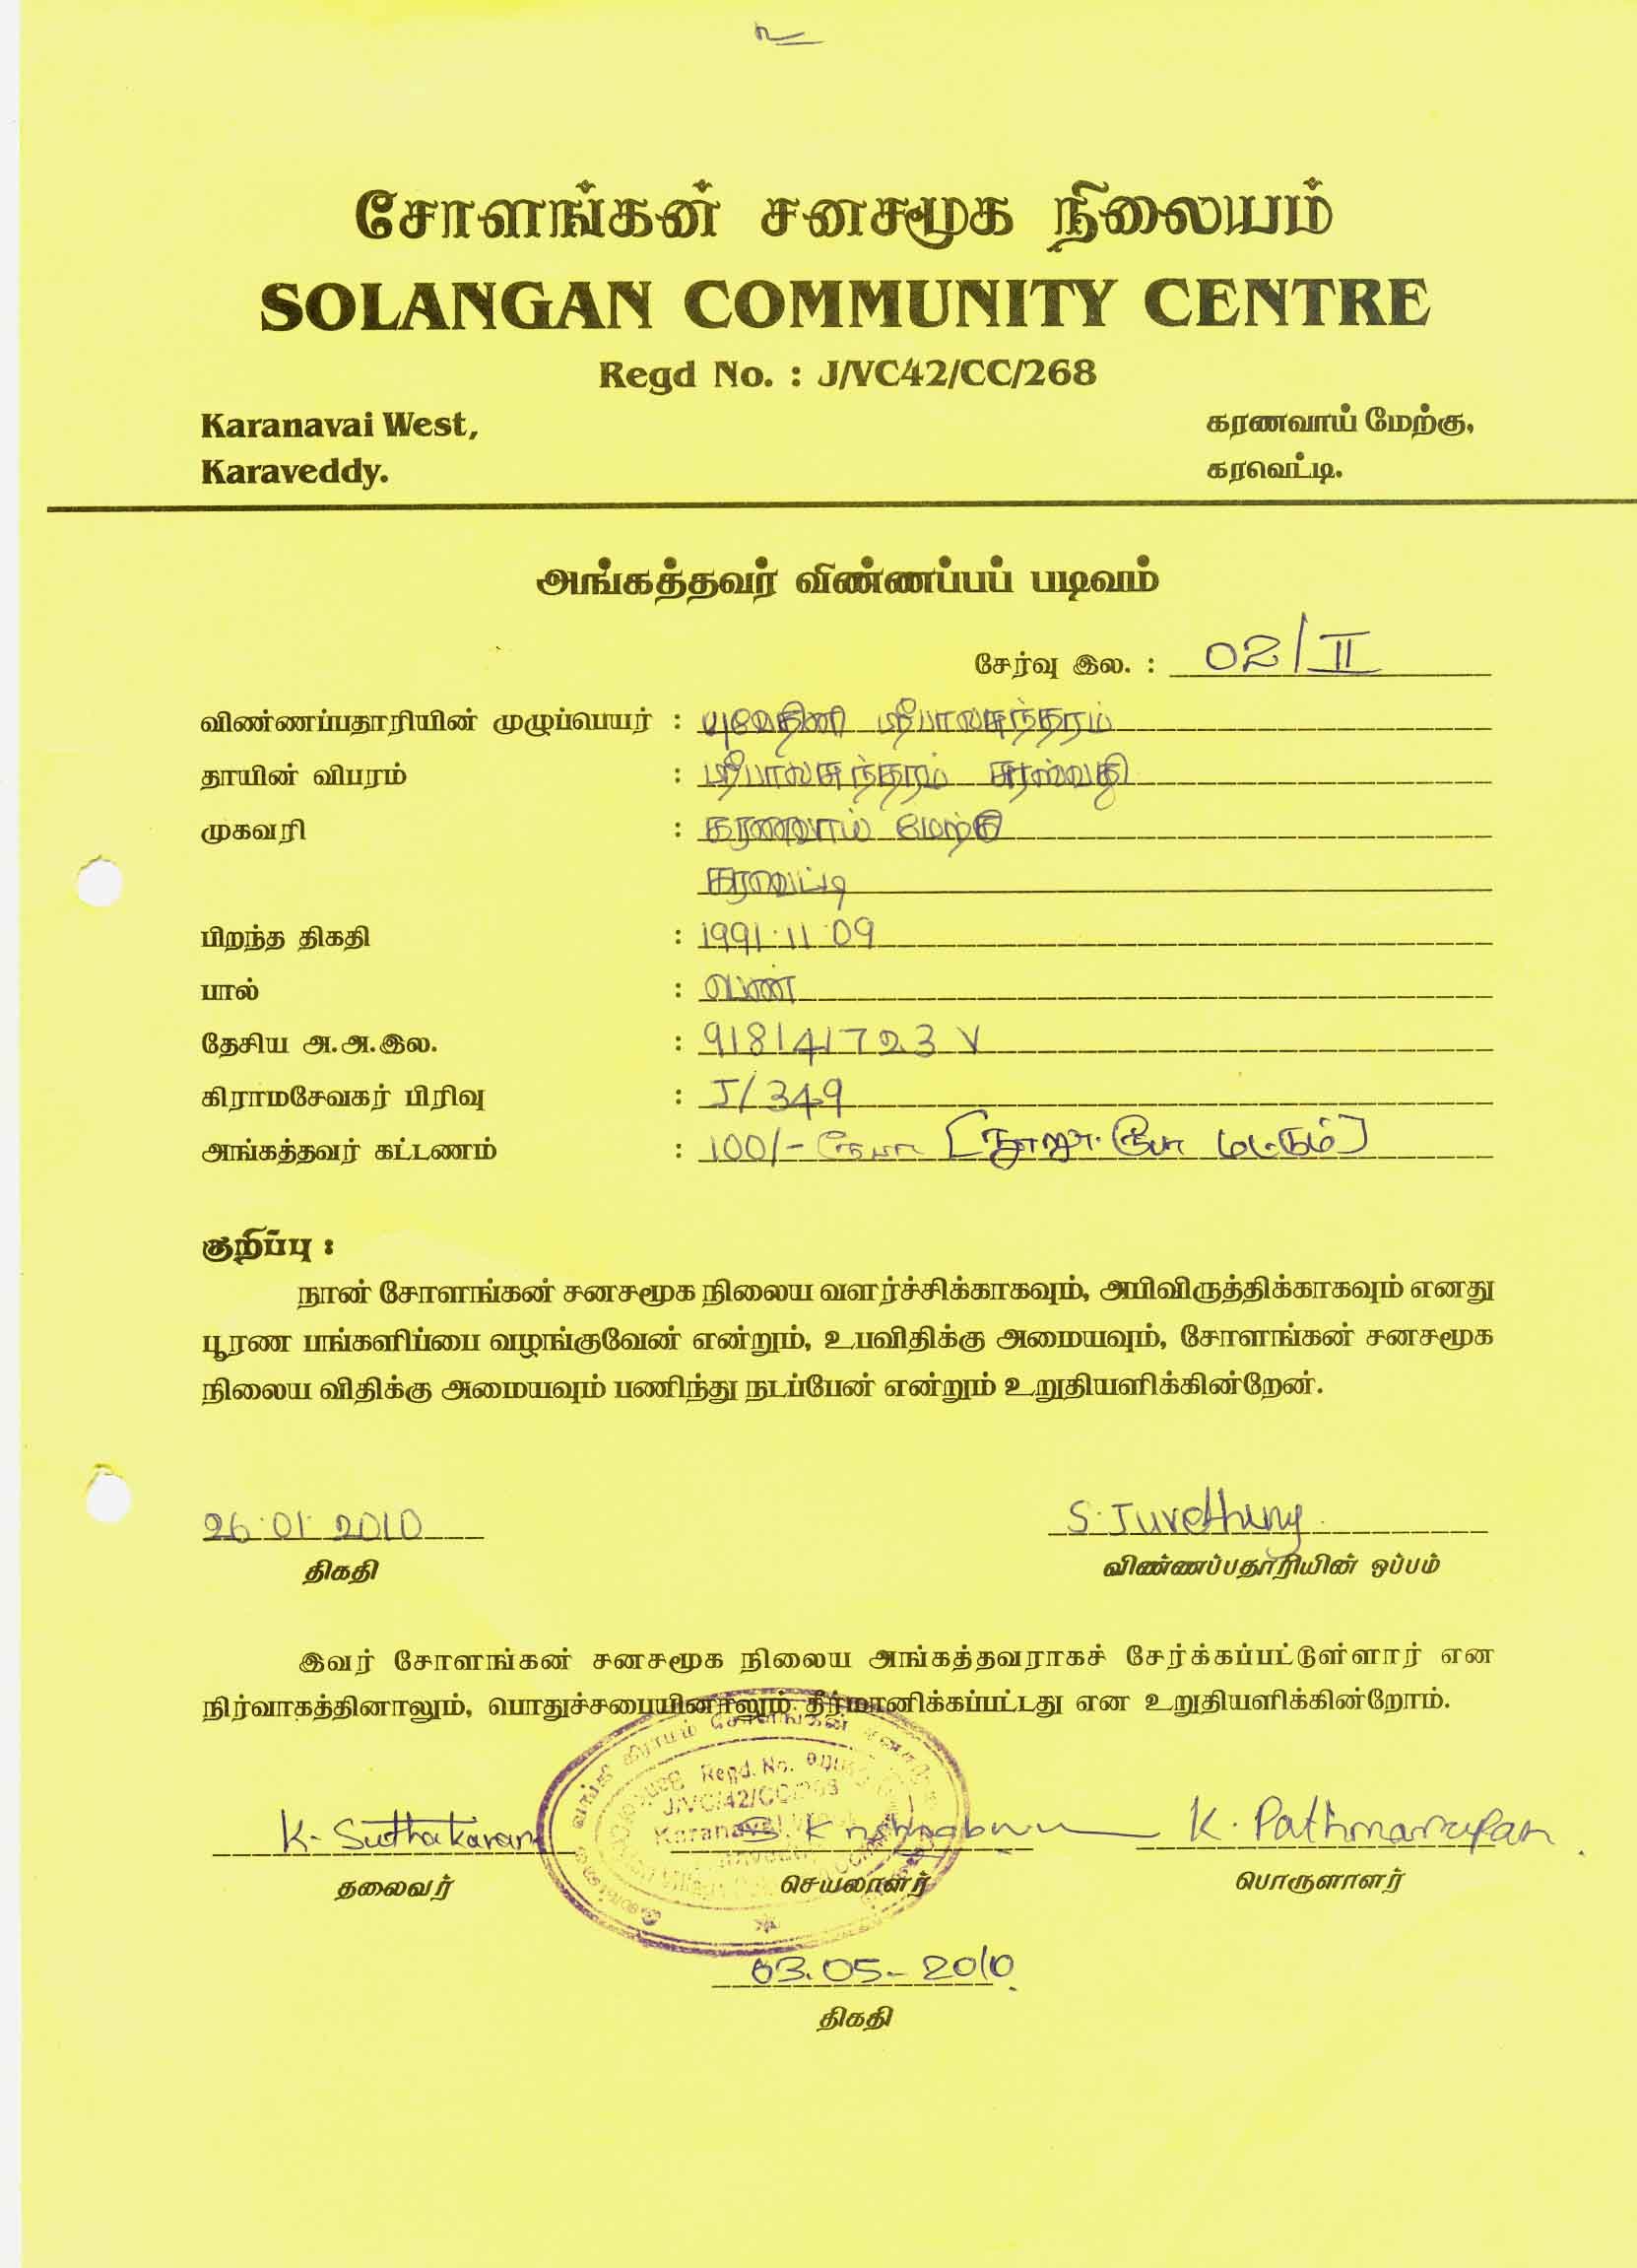 சோளங்கன் சனசமூக நிலையம்
SOLANGAN COMMUNITY CENTRE
Regd No. : J/VC42/CC/268
Karanavai West, கரணவாய் மேற்கு,
Karaveddy. கரவெட்டி.
அங்கத்தவர் விண்ணப்பப் படிவம்
சேர்வு இல. : 02/II
விண்ணப்பதாரியின் முழுப்பெயர் : யுவேதினி ஸ்ரீபாலசுந்தரம்
தாயின் விபரம் : ஸ்ரீபாலசுந்தரம் சரஸ்வதி
முகவரி : கரணவாய் மேற்கு
கரவெட்டி
பிறந்த திகதி : 1991.11.09
பால் : பெண்
தேசிய அ.அ.இல. : 918141723 V
கிராமசேவகர் பிரிவு : J/349
அங்கத்தவர் கட்டணம் : 100/- ரூபா [நூறு ரூபா மட்டும்]
குறிப்பு :
நான் சோளங்கன் சனசமூக நிலைய வளர்ச்சிக்காகவும், அபிவிருத்திக்காகவும் எனது
பூரண பங்களிப்பை வழங்குவேன் என்றும், உபவிதிக்கு அமையவும், சோளங்கன் சனசமூக
நிலைய விதிக்கு அமையவும் பணிந்து நடப்பேன் என்றும் உறுதியளிக்கின்றேன்.
26.01.2010 S.Juvethiny
திகதி விண்ணப்பதாரியின் ஒப்பம்
இவர் சோளங்கன் சனசமூக நிலைய அங்கத்தவராகச் சேர்க்கப்பட்டுள்ளார் என
நிர்வாகத்தினாலும், பொதுச்சபையினாலும் தீர்மானிக்கப்பட்டது என உறுதியளிக்கின்றோம்.
கிராமம் சோளங்கன்
Regd. No.
J/VC/42/CC/268
Karanavai West
K. Suthakaran S. K K. Pathmanayfan
தலைவர் செயலாளர் பொருளாளர்
03.05-2010
திகதி